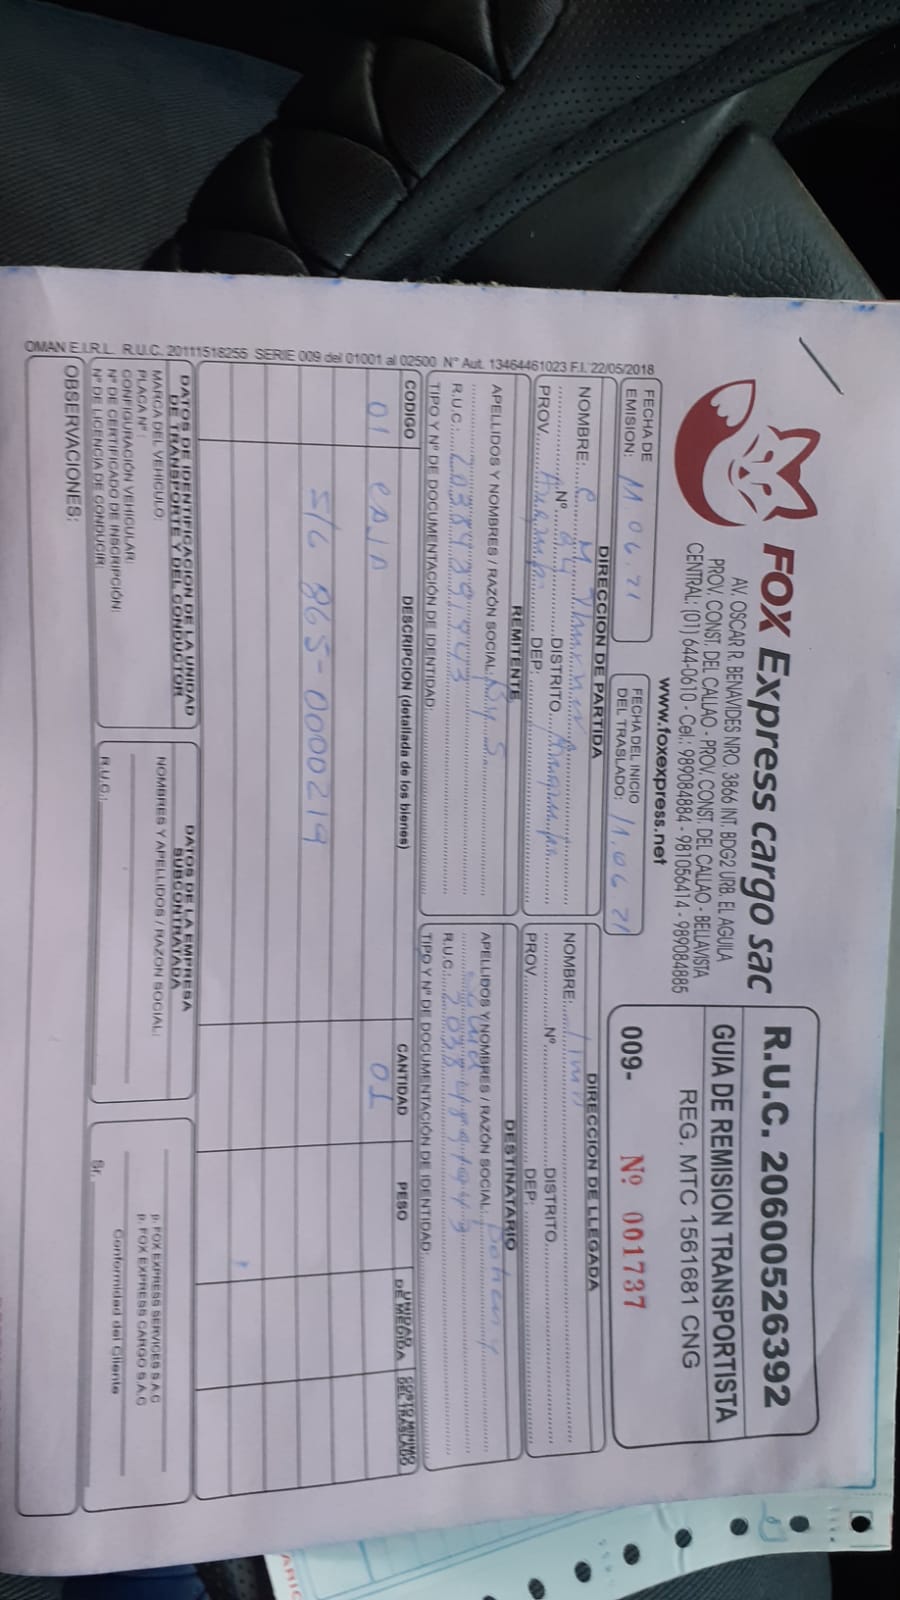 FOX Express cargo sac
AV. OSCAR R. BENAVIDES NRO. 3866 INT. BDG2 URB. EL AGUILA
PROV. CONST. DEL CALLAO - PROV. CONST. DEL CALLAO - BELLAVISTA
CENTRAL: (01) 644-0610 - Cel.: 989084884 - 981056414 - 989084885
www.foxexpress.net
R.U.C. 20600526392
GUIA DE REMISION TRANSPORTISTA
REG. MTC 1561681 CNG
009- Nº 001737
FECHA DE EMISION: 11.06.21
FECHA DEL INICIO DEL TRASLADO: 11.06.21
DIRECCION DE PARTIDA
NOMBRE:
Nº DISTRITO
PROV. DEP:
DIRECCION DE LLEGADA
NOMBRE: Lima
Nº DISTRITO
PROV. DEP:
REMITENTE
APELLIDOS Y NOMBRES / RAZÓN SOCIAL:
R.U.C.: 20384891943
TIPO Y Nº DE DOCUMENTACIÓN DE IDENTIDAD:
DESTINATARIO
APELLIDOS Y NOMBRES / RAZÓN SOCIAL:
R.U.C.:
TIPO Y Nº DE DOCUMENTACIÓN DE IDENTIDAD:
CODIGO DESCRIPCION (detallada de los bienes) CANTIDAD PESO UNIDAD DE MEDIDA COSTO MINIMO DEL TRASLADO
01 CAJA 01
S/G 865-0000219
DATOS DE IDENTIFICACION DE LA UNIDAD
DE TRANSPORTE Y DEL CONDUCTOR
MARCA DEL VEHICULO:
PLACA Nº :
CONFIGURACIÓN VEHICULAR:
Nº DE CERTIFICADO DE INSCRIPCIÓN:
Nº DE LICENCIA DE CONDUCIR:
DATOS DE LA EMPRESA
SUBCONTRATADA
NOMBRES Y APELLIDOS / RAZON SOCIAL:
R.U.C.:
p. FOX EXPRESS SERVICES S.A.C
p. FOX EXPRESS CARGO S.A.C
Conformidad del Cliente
Sr.
OBSERVACIONES:
OMAN E.I.R.L. R.U.C. 20111518255 SERIE 009 del 01001 al 02500 N° Aut. 13464461023 F.I. 22/05/2018